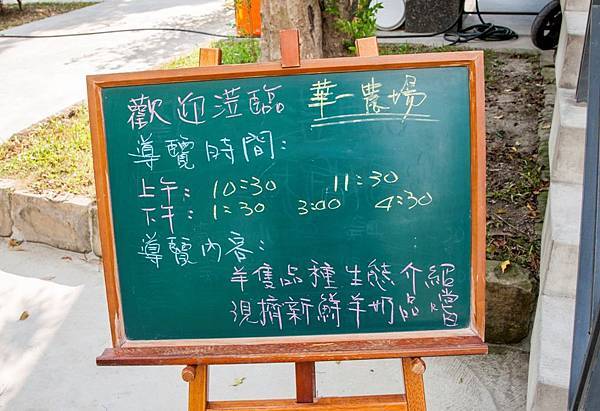 歡迎蒞臨 華一農場
導覽時間:
上午: 10:30 11:30
下午: 1:30 3:00 4:30
導覽內容:
羊隻品種生態介紹
現擠新鮮羊奶品嚐